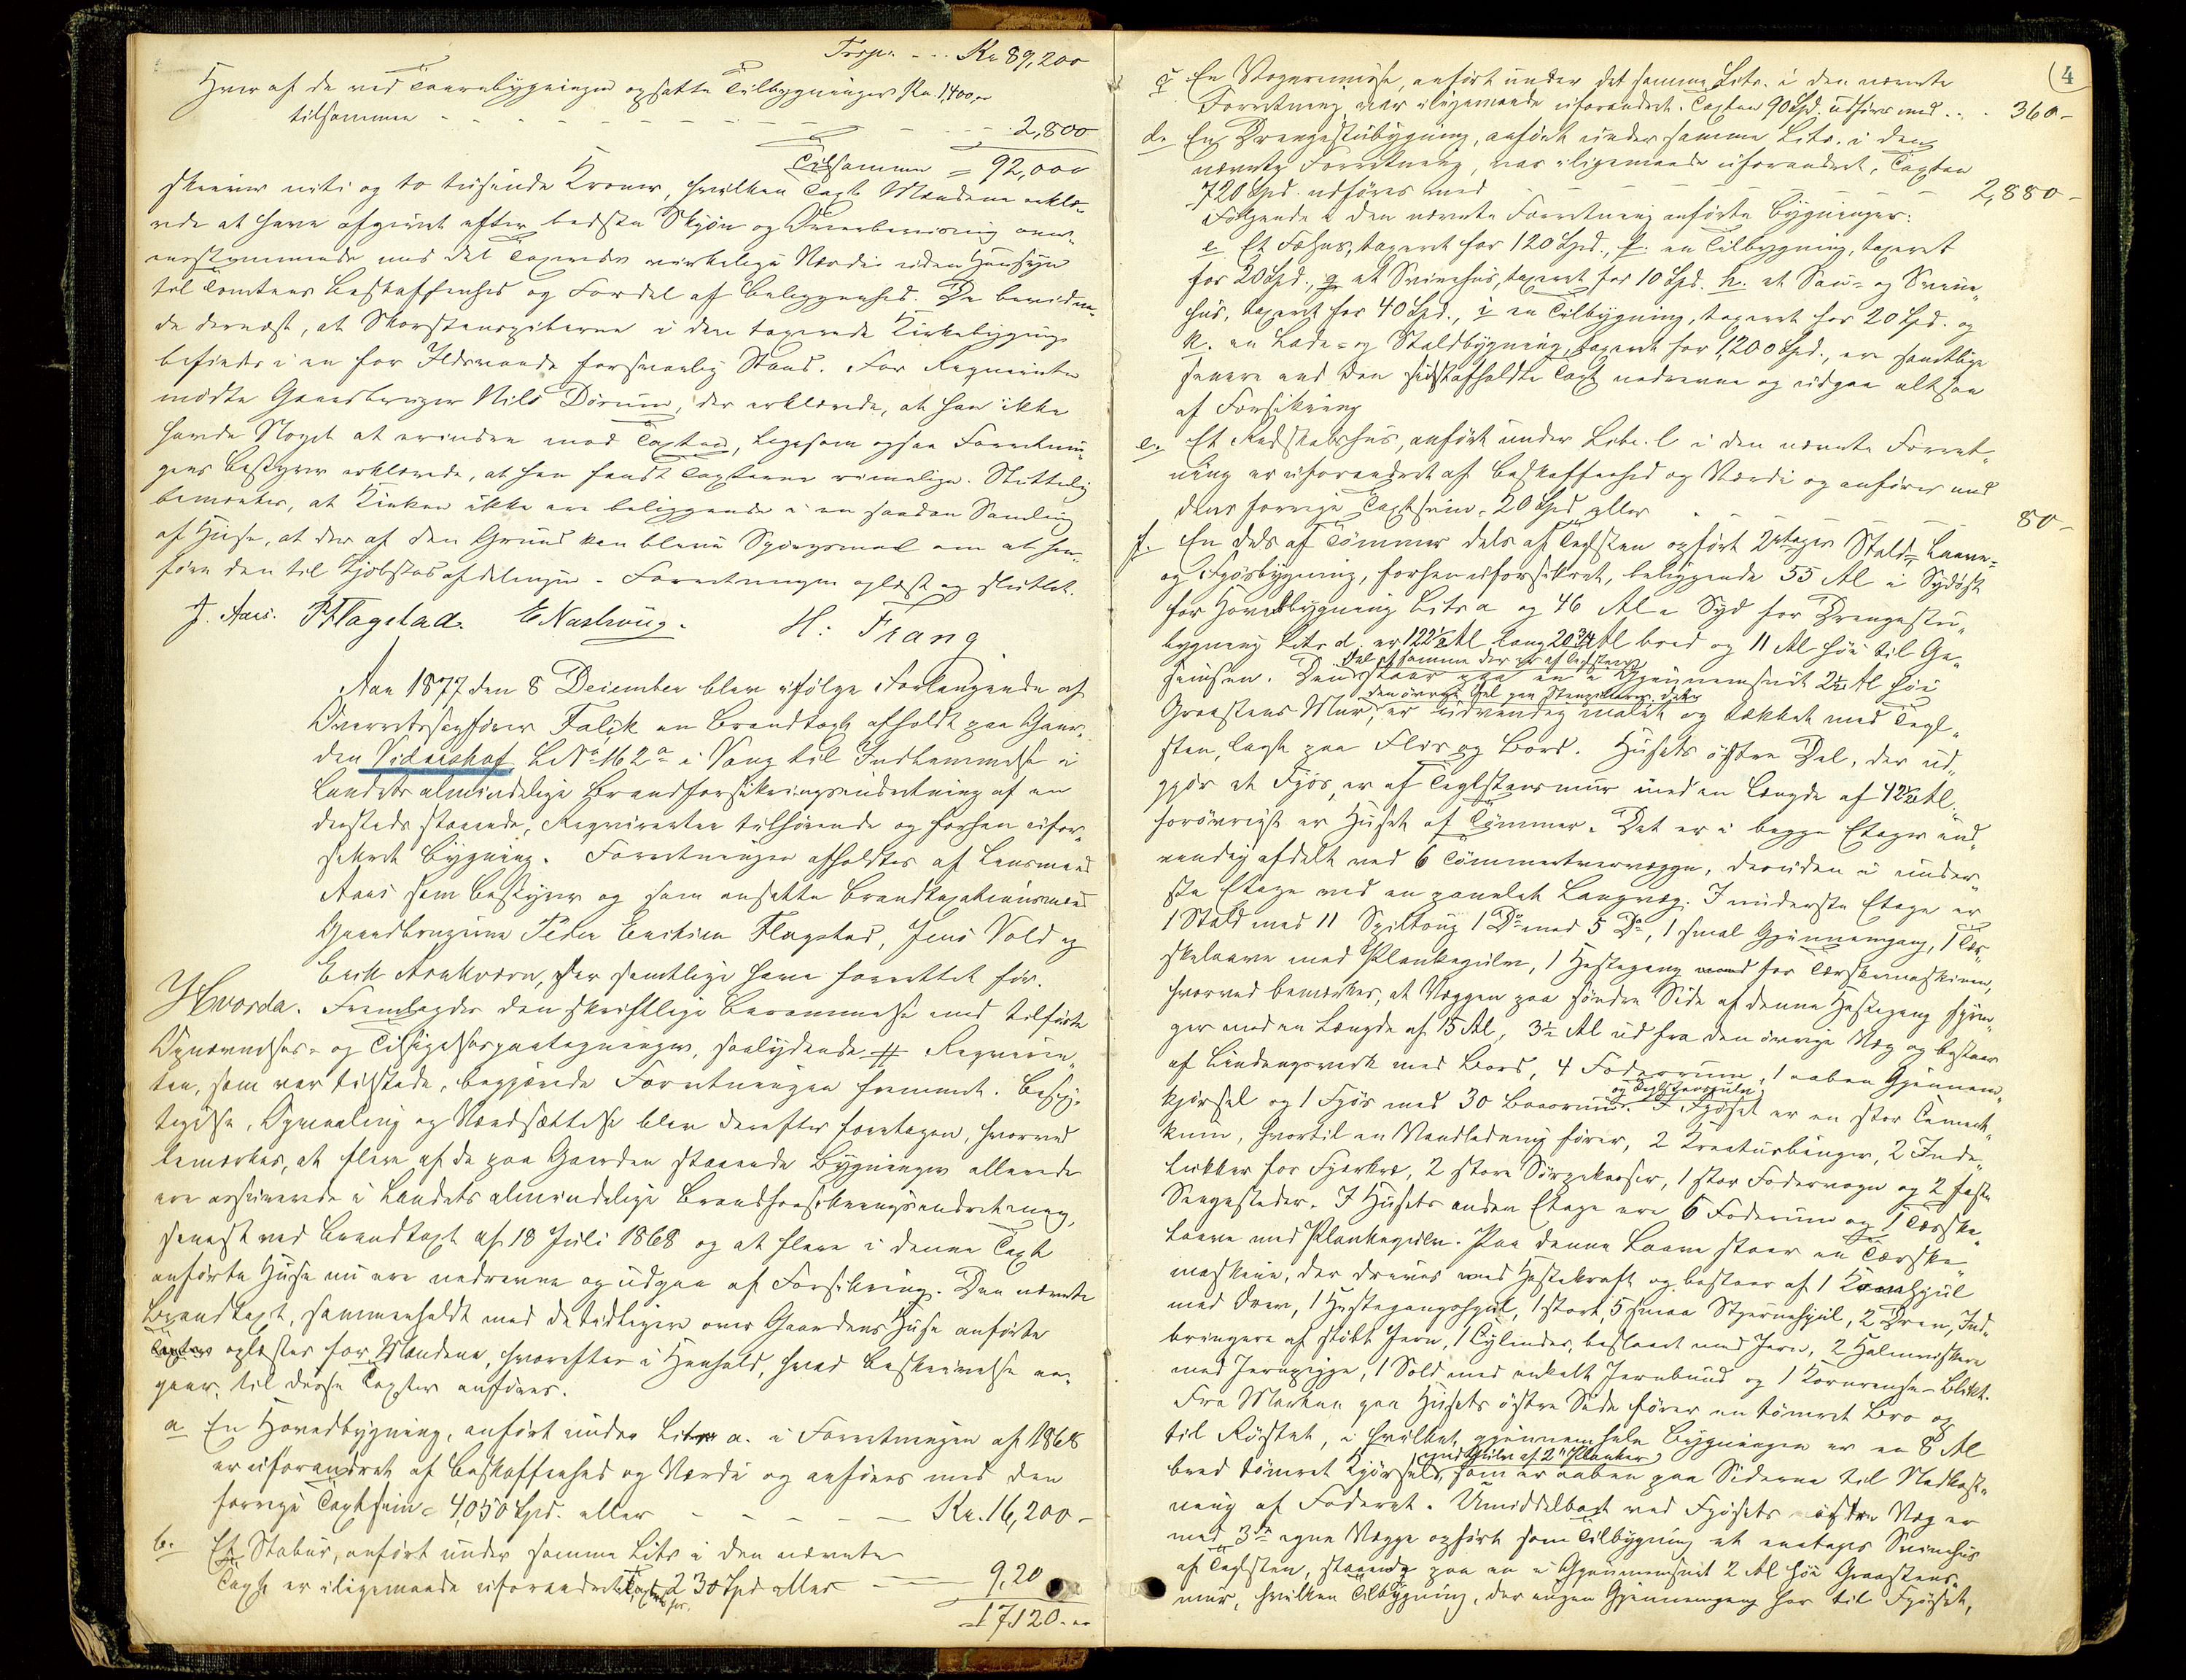 Trsp. - - - Kr 89,200
Hver af de ved Taarnbygningen opsatte Tilbygninger Kr. 1,400,-
tilsammen - - - - - - - - - 2,800
Tilsammen = 92,000
skriver niti og to tusinde Kroner, hvilken Taxt Mændene erklæ-
rede at have afgivet efter bedste Skjøn og Overbevisning over-
ensstemmende med det Taxeredes virkelige Værdi uden Hensyn
til Tomtens Beskaffenhed og Fordel af Beliggenhed. De bevidne-
de dernæst, at Skorstenspiberne i den taxerede Kirkebygning
befindes i en for Ildsvaade forsvarlig Stand. For Requirenten
mødte Gaardbruger Nils Dørum, der erklærede, at han ikke
havde Noget at erindre mod Taxten, ligesom ogsaa Forretnin-
gens Bestyrer erklærede, at han fandt Taxterne rimelige. Sluttelig
bemærkes, at Kirken ikke er beliggende i en saadan Samling
af Huse, at der af den Grund kan blive Spørgsmaal om at hen-
føre den til Kjøbstadafdelingen. - Forretningen oplæst og sluttet.
J. Aars. P. Flagstad. E Nashoug. H: Frang
Aar 1877 den 8 December blev ifølge Forlangende af
Overretssagfører Falck en Brandtaxt afholdt paa Gaar-
den Vidarshof L. No 162a i Vang til Indlemmelse i
Landets almindelige Brandforsikringsindretning af en
dersteds staaende, Reqvirenten tilhørende og forhen ufor-
sikret Bygning. Forretningen afholdtes af Lensmand
Aars som Bestyrer og som ansatte Brandtaxationsmænd
Gaardbrugerne Peder Erichsen Flagstad, Jens Vold og
Erik Arnkværn, der samtlige have forrettet før.
Hvorda. Fremlagdes den skriftlige Berammelse med tilførte
Opnævnelses- og Tilsigelsespaategninger, saalydende # Reqviren-
ten, som var tilstede, begjærede Forretningen fremmet. Besig-
tigelse, Opmaaling og Værdsættelse blev derefter foretagen, hvorved
bemærkes, at flere af de paa Gaarden staaende Bygninger allerede
ere assurerede i Landets almindelige Brandforsikringsindretning,
senest ved Brandtaxt af 18 Juli 1868 og at flere i denne Taxt
anførte Huse nu ere nedrevne og udgaa af Forsikring. Den nævnte
Brandtaxt, sammenholdt med de tidligere over Gaardens Huse anførte
Taxter oplæstes for Mændene, hvorefter i Henhold, hvad Beskrivelse an-
gaar, til disse Taxter anføres.
a En Hovedbygning, anført under Litr a. i Forretningen af 1868
er uforandret af Beskaffenhed og Værdi og anføres med den
forrige Taxtsum = 4,050 Spd. eller - - - - - Kr. 16,200 -
b. Et Stabur, anført under samme Litr i den nævnte
Taxt er iligemaade uforandret, Taxt 230 Spd eller - - 9,20
17,120.-
4
c En Vognremisse, anført under det samme Litr. i den nævnte
Forretning, var iligemaade uforandret. Taxten 90 Spd. udføres med . . . 360 -
d. En Drengestubygning, anført under samme Litr. i den
nævnte Forretning, var iligemaade uforandret, Taxten
720 Spd. udføres med - - - - - - - 2,880 -
Følgende i den nævnte Forretning anførte Bygninger:
e Et Fæhus, taxeret for 120 Spd., f. en Tilbygning, taxeret
for 20 Spd., g et Svinehus, taxeret for 10 Spd. h. et Sau- og Svine-
hus, taxeret for 40 Spd., i en Tilbygning, taxeret for 20 Spd. og
k. en Lade- og Staldbygning, taxeret for 1,200 Spd., ere samtlige
senere end den sidstafholdte Taxt nedrevne og udgaa altsaa
af Forsikring
e. Et Redskabshus, anført under Litr. l i den nævnte Forret-
ning er uforandret af Beskaffenhed og Værdi og anføres med
dens forrige Taxtsum, 20 Spd eller - - - - 80 -
f. En dels af Tømmer dels af Teglsten opført 2 etages Stald-, Laave-
og Fjøsbygning, forhen uforsikret, beliggende 55 Al i Sydøst
for Hovedbygning Litr a og 46 Al i Syd for Drengestu-
bygning Litr d. er 122½ Al lang 20¾ Al bred og 11 Al høi til Ge-
simsen. Den Del af samme der er af Teglsten staar paa en i Gjennemsnit 2½ Al høi
Graastens Mur, den øvrige Del paa Stenpillarer, er udvendig malet og tækket med Tegl-
sten, lagt paa Flis og Bord. Husets østre Del, der ud-
gjør et Fjøs, er af Teglstensmur med en Længde af 42½ Al.
forøvrigt er Huset af Tømmer. Det er i begge Etager ind-
vendig afdelt ved 6 Tømmertvervægge, desuden i under-
ste Etage ved en panelet Langvæg. I underste Etage er
1 Stald med 11 Spiltoug 1 Do med 5 Do, 1 smal Gjennemgang, 1 Tær-
skelaave med Plankegulv, 1 Hestegang for Tærskemaskinen,
hvorved bemærkes, at Væggen paa søndre Side af denne Hestegang sprin-
ger med en Længde af 15 Al, 3½ Al ud fra den øvrige Væg og bestaar
af Bindingsverk med Bord, 4 Foderrum, 1 aaben Gjennem-
kjørsel og 1 Fjøs med 30 Baaserum og Teglstensgulv. I Fjøset er en stor Cement-
kum, hvortil en Vandledning fører, 2 Kreaturbinger, 2 Inde-
lukker for Fjærkræ, 2 store Sørpekasser, 1 stor Fodervogn og 2 faste
Sengesteder. I Husets anden Etage ere 6 Foderum og 1 Tærske-
laave med Plankegulv. Paa denne Laave staar en Tærske-
maskine, der drives med Hestekraft og bestaar af 1 Kamhjul
med Drev, 1 Hestegangshjul, 1 stort, 5 smaa Stjernehjul, 2 Drev, Ind-
bringere af støbt Jern, 1 Cylinder, beslaaet med Jern, 2 Halmristere
med Jernpigge, 1 Sold med enkelt Jernbund og 1 Kornrense-Blikk.
Fra Marken paa Husets østre Side fører en tømret Bro op
til Røstet, i hvilket, gjennem hele Bygningen er en 8 Al
bred tømret Kjørsel med Gulv af 2" Planker, som er aaben paa Siderne til Nedkast-
ning af Foderet. Umiddelbart ved Fjøsets østre Væg er
med 3de egne Vægge opført som Tilbygning et enetages Svinehus
af Teglsten, staaende paa en i Gjennemsnit 2 Al høi Graastens-
mur, hvilken Tilbygning, der ingen Gjennemgang har til Fjøset,